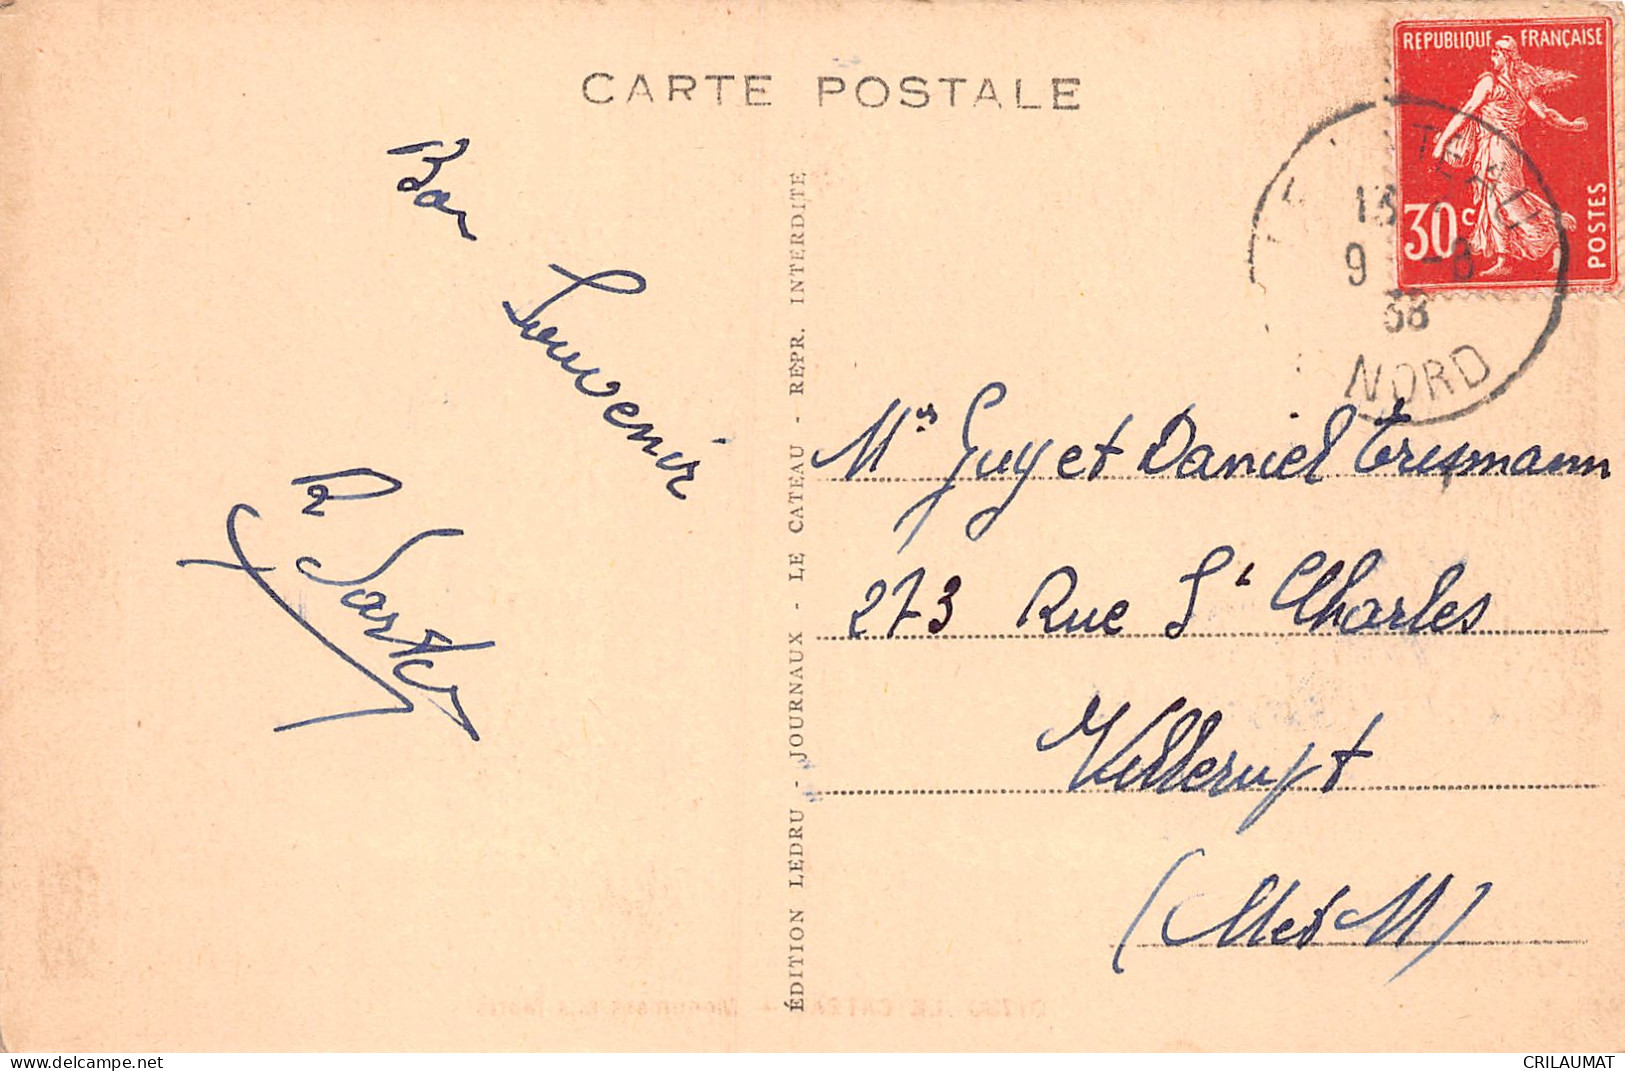 CARTE POSTALE
REPUBLIQUE FRANÇAISE
30c
POSTES
13
9 -8
38
NORD
Bon
Souvenir
ÉDITION LEDRU - JOURNAUX - LE CATEAU - REPR. INTERDITE
Mrs Guy et Daniel
273 Rue St Charles
Villerupt
(M et M)
delcampe.net
CRILAUMAT